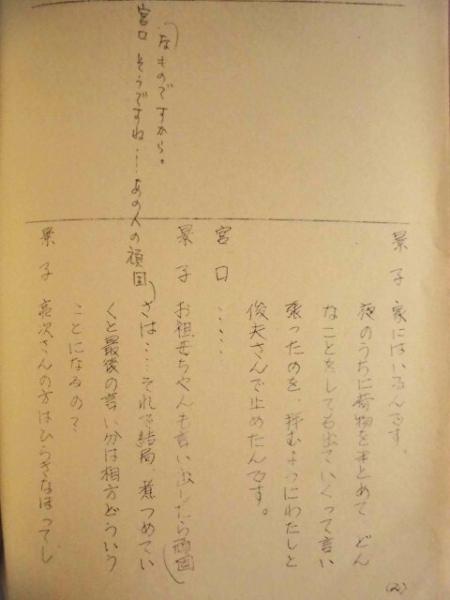 景子 家にはいるんです。
夜のうちに荷物をまとめて どん
なことをしても出ていくって言い
張ったのを、拝むようにわたしと
俊夫さんで止めたんです。
宮口 ……
景子 お祖母ちゃんも言い出したら頑固
なものですから。
宮口 そうですね……あの人の頑固
さは……それで結局、煮つめてい
くと最後の言い分は相方どういう
ことになるの?
景子 亮次さんの方はひらきなおってし
(2)